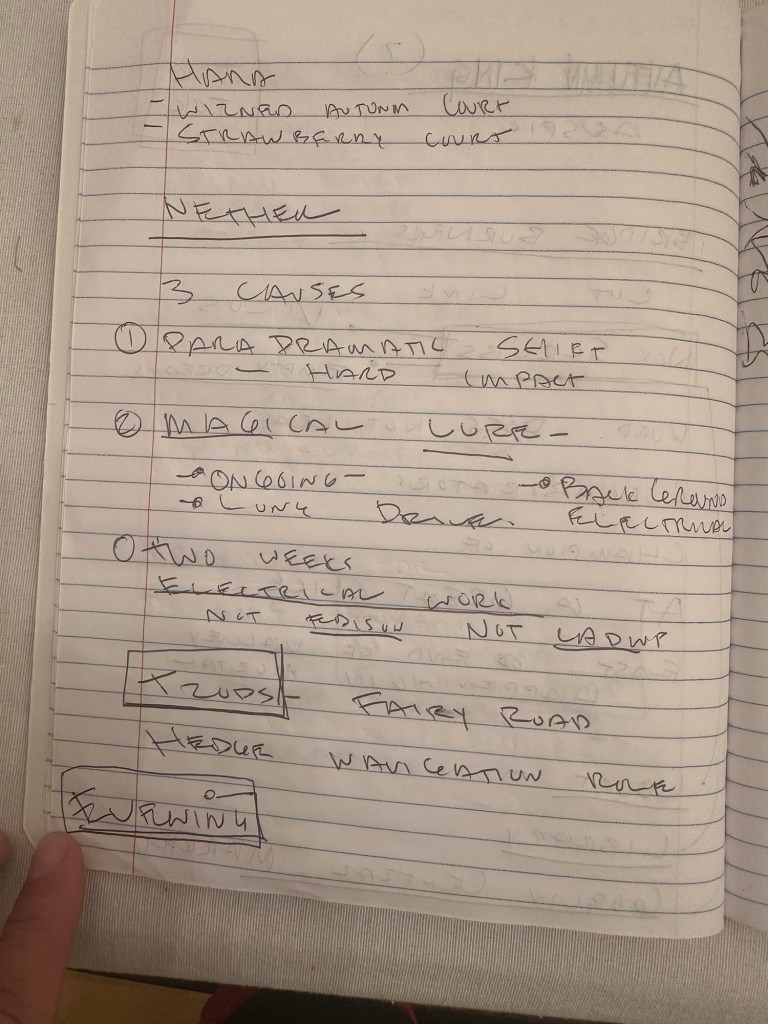 HANA
- WIZNED AUTONM COURT
- STRAWBERRY COURT
NETHER
3 CAUSES
① PARADRAMATIC SHIFT
- HARD IMPACT
② MAGICAL LURE -
→ ONGOING - → BACKGROUND
→ LONG DRIVE. ELECTRICAL
O TWO WEEKS
ELECTRICAL WORK
NOT EDISON NOT LADWP
TRODS - FAIRY ROAD
HEDGE NAVIGATION ROLE
EVENING